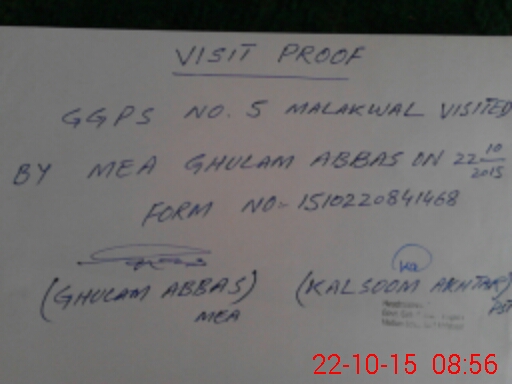 VISIT PROOF
GGPS NO. 5 MALAKWAL VISITED
BY MEA GHULAM ABBAS ON 22 10/2015
FORM NO:- 1510220841468
(GHULAM ABBAS) (KALSOOM AKHTAR)
MEA PST
22-10-15 08:56